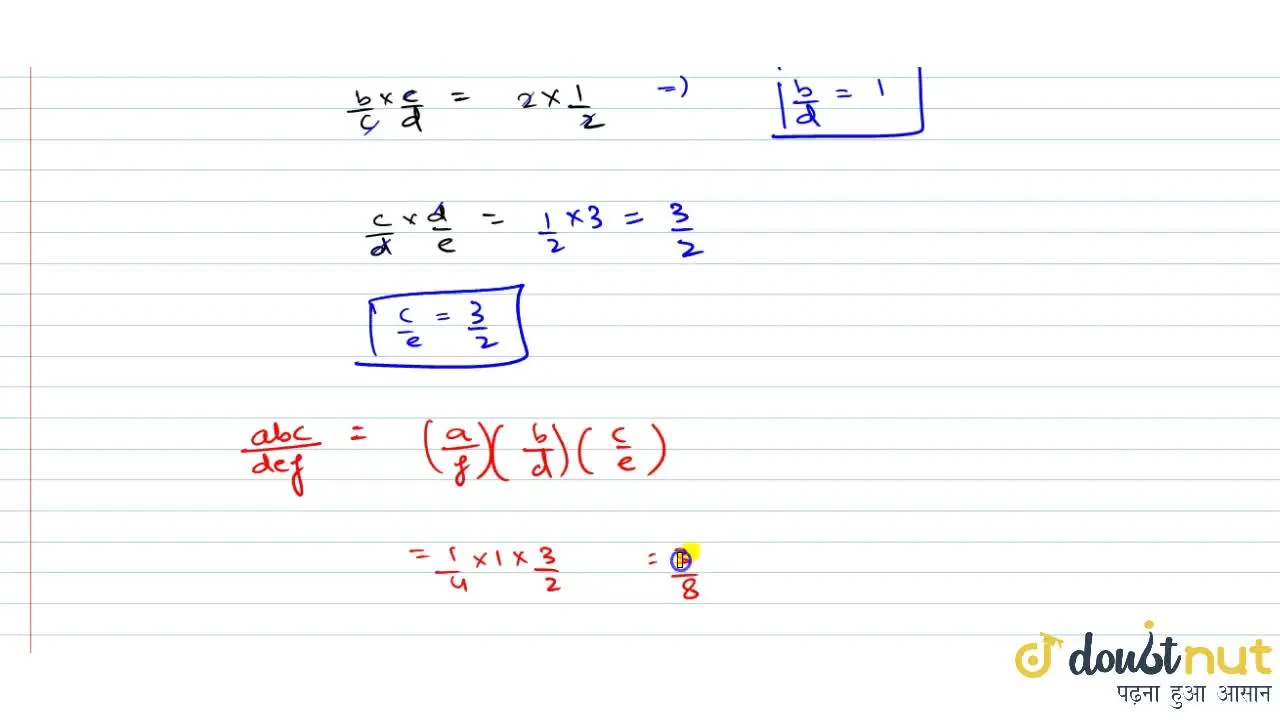 b/c × c/d = 2 × 1/2 ⇒ b/d = 1
c/d × d/e = 1/2 × 3 = 3/2
c/e = 3/2
abc/def = (a/f)(b/d)(c/e)
= 1/4 × 1 × 3/2 = /8
doubtnut
पढ़ना हुआ आसान